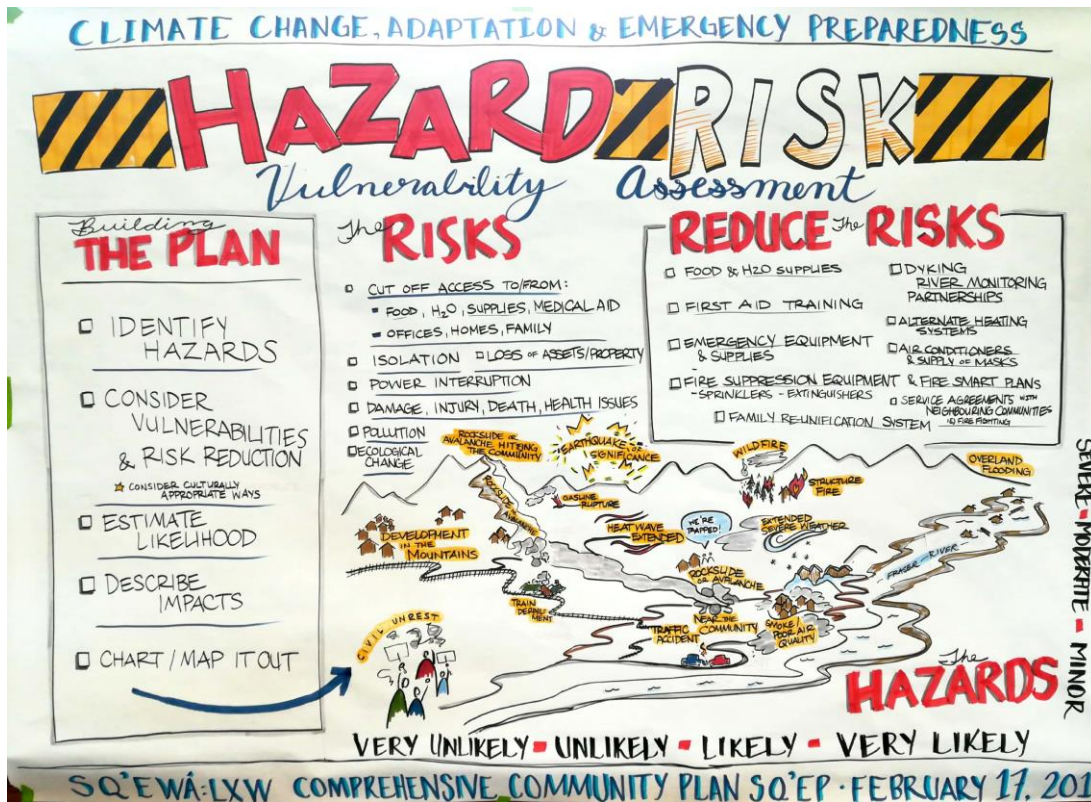 CLIMATE CHANGE, ADAPTATION & EMERGENCY PREPAREDNESS
HAZARD RISK
Vulnerability Assessment
Building
THE PLAN
☐ IDENTIFY
HAZARDS
☐ CONSIDER
VULNERABILITIES
& RISK REDUCTION
★ CONSIDER CULTURALLY
APPROPRIATE WAYS
☐ ESTIMATE
LIKELIHOOD
☐ DESCRIBE
IMPACTS
☐ CHART / MAP IT OUT
The RISKS
☐ CUT OFF ACCESS TO/FROM:
- FOOD, H2O, SUPPLIES, MEDICAL AID
- OFFICES, HOMES, FAMILY
☐ ISOLATION ☐ LOSS OF ASSETS/PROPERTY
☐ POWER INTERRUPTION
☐ DAMAGE, INJURY, DEATH, HEALTH ISSUES
☐ POLLUTION
☐ ECOLOGICAL
CHANGE
REDUCE The RISKS
☐ FOOD & H2O SUPPLIES
☐ FIRST AID TRAINING
☐ EMERGENCY EQUIPMENT
& SUPPLIES
☐ FIRE SUPPRESSION EQUIPMENT & FIRE SMART PLANS
- SPRINKLERS - EXTINGUISHERS
☐ FAMILY REUNIFICATION SYSTEM
☐ DYKING
RIVER MONITORING
PARTNERSHIPS
☐ ALTERNATE HEATING
SYSTEMS
☐ AIR CONDITIONERS
& SUPPLY OF MASKS
☐ SERVICE AGREEMENTS WITH
NEIGHBOURING COMMUNITIES
FIRE FIGHTING
ROCKSLIDE or
AVALANCHE HITTING
THE COMMUNITY
EARTHQUAKE OF
SIGNIFICANCE
WILDFIRE
STRUCTURE
FIRE
OVERLAND
FLOODING
ROCKSLIDE
AVALANCHE
GASLINE
RUPTURE
DEVELOPMENT
IN THE
MOUNTAINS
HEAT WAVE
EXTENDED
WE'RE
TRAPPED!
EXTENDED
SEVERE WEATHER
FRASER-RIVER
ROCKSLIDE
OR AVALANCHE
NEAR THE
COMMUNITY
TRAIN
DERAIL
MENT
TRAFFIC
ACCIDENT
SMOKE/
POOR AIR
QUALITY
CIVIL UNREST
The
HAZARDS
SEVERE - MODERATE - MINOR
VERY UNLIKELY - UNLIKELY - LIKELY - VERY LIKELY
SQ'EWÁ:LXW COMPREHENSIVE COMMUNITY PLAN SQ'EP · FEBRUARY 17, 201